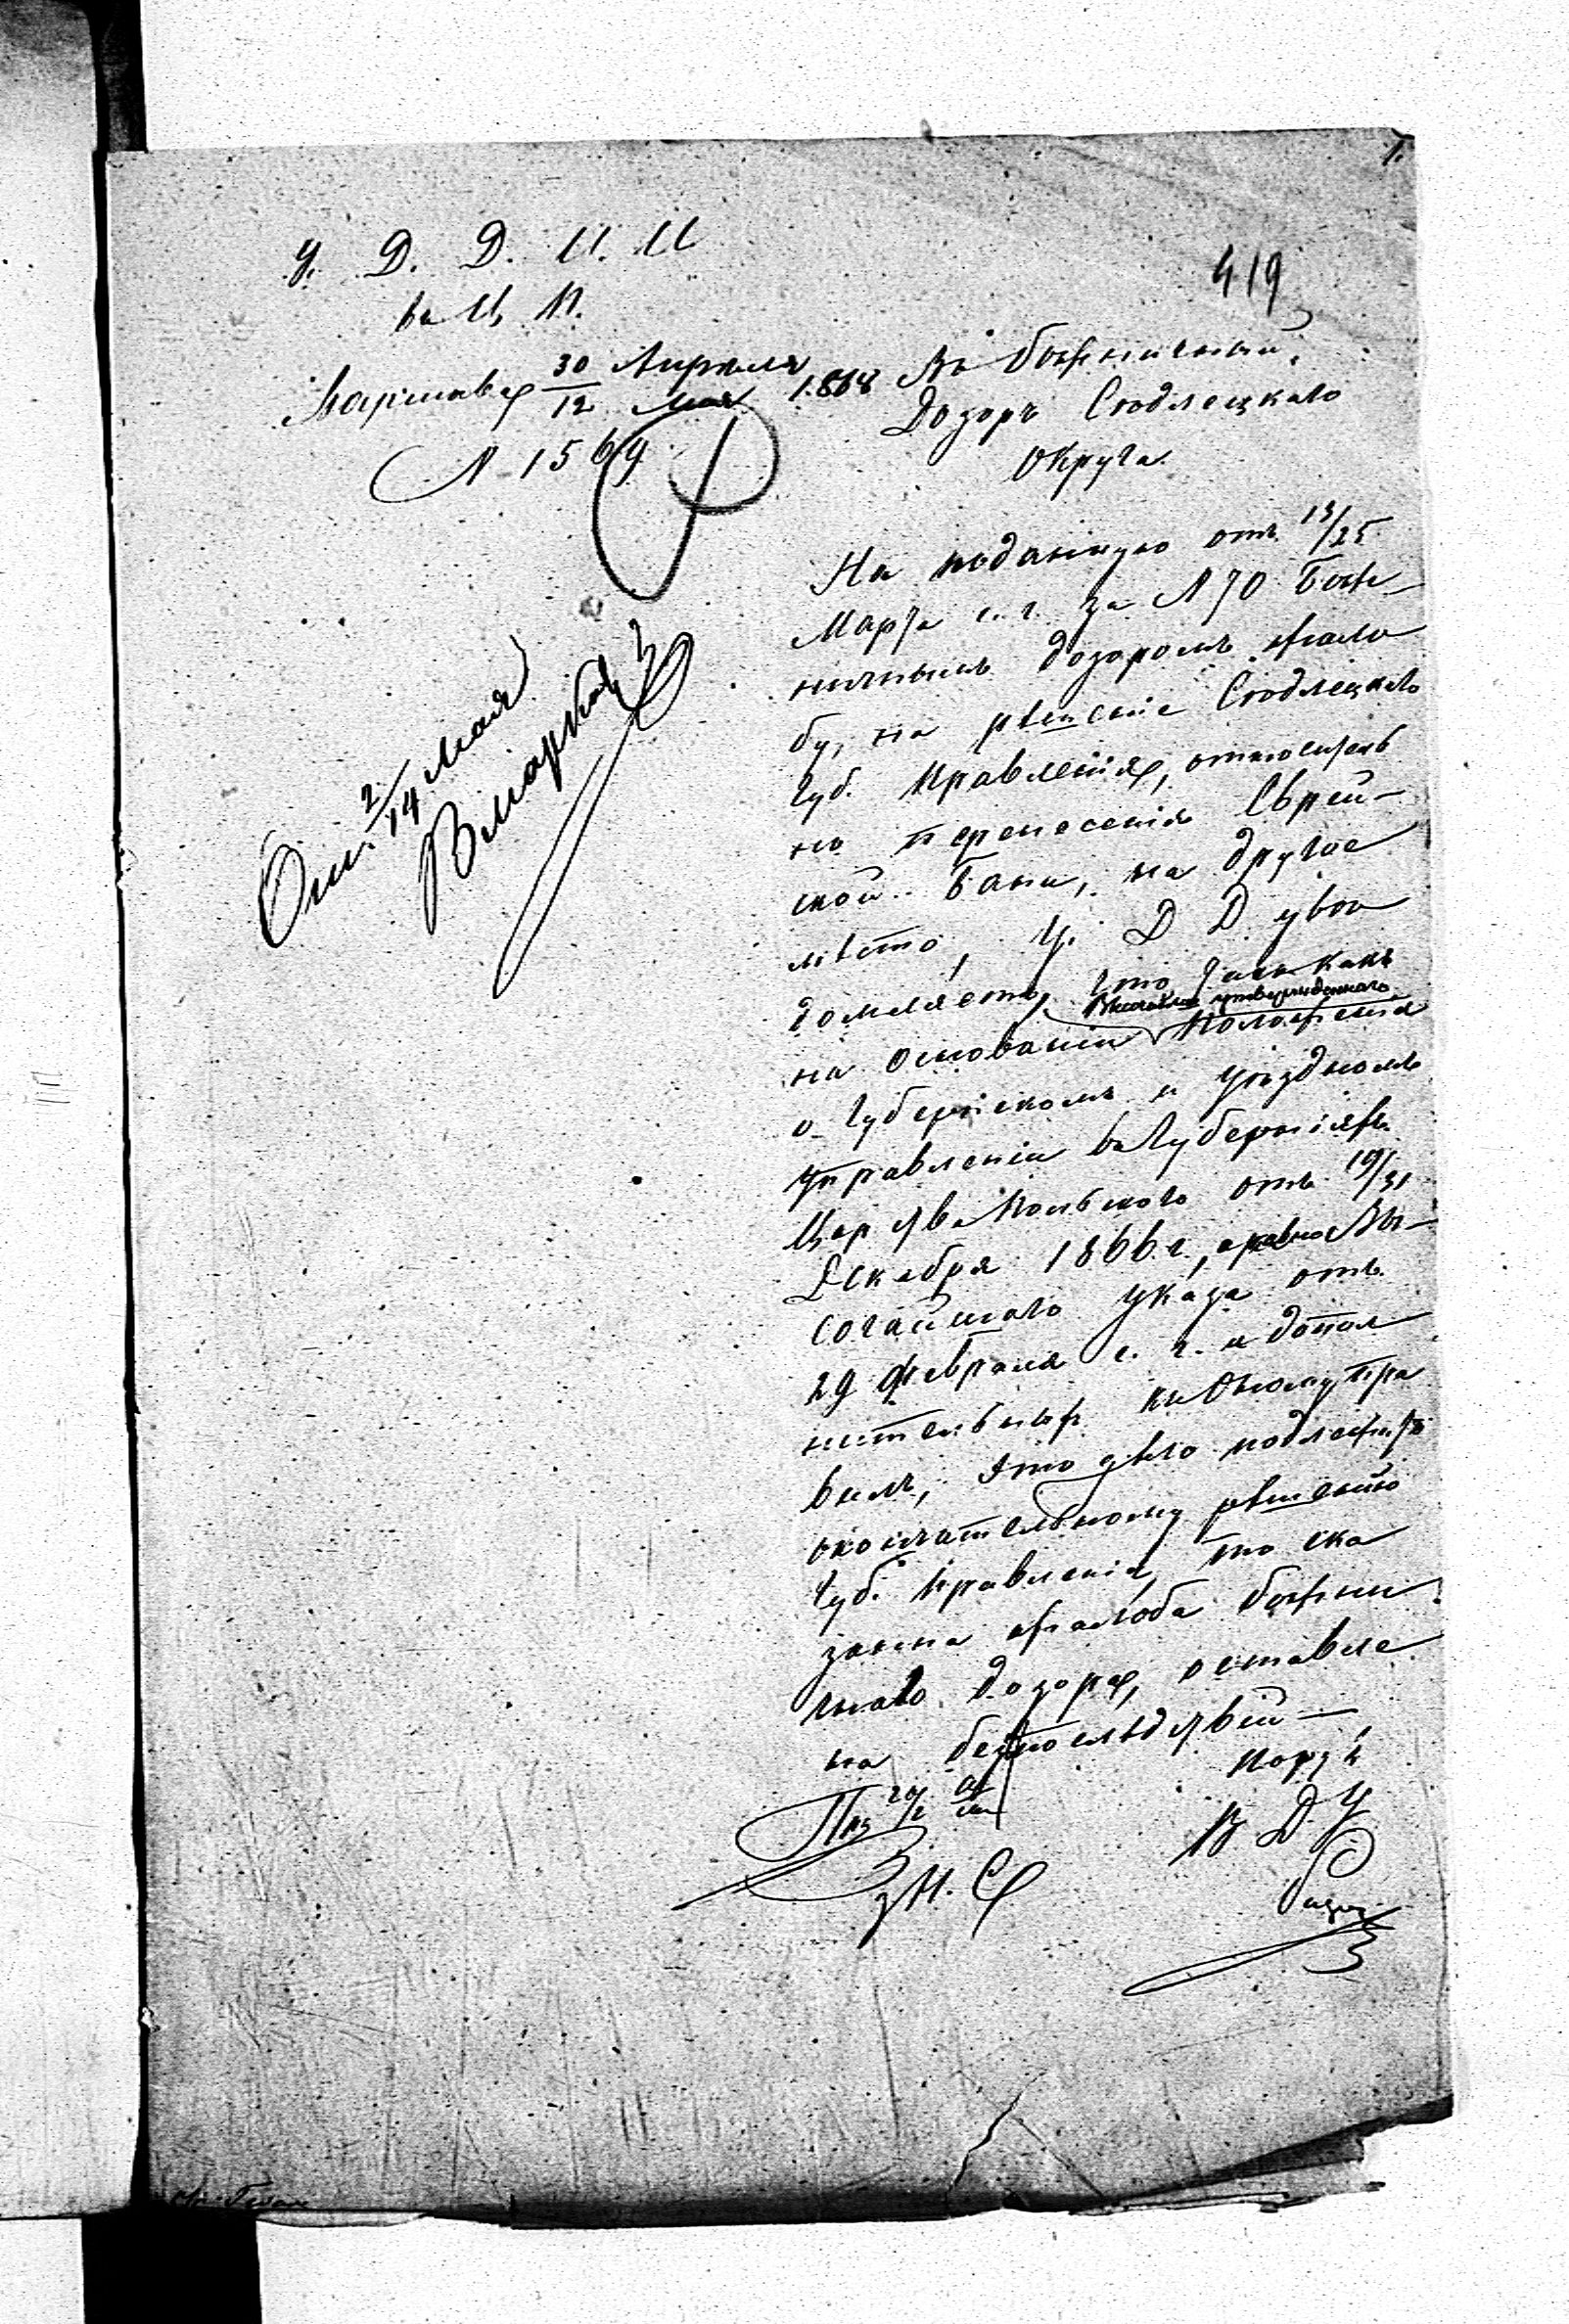 419
У. Д. Д. И. И
въ Ц. П.
Варшава 30/12 Апреля Мая 1868
N 1569
Въ Божничный
Дозоръ Сѣдлецкаго
Округа.
Отп. 2/14 Мая
На поданную отъ 13/25
Марта с. г. за N 70 Бож-
ничнымъ дозоромъ жало
бу, на рѣшеніе Сѣдлецкаго
Губ. Правленія, относитель
но перенесенія Еврей-
ской Бани, на другое
мѣсто, У. Д Д увѣ
домляетъ, что такъ какъ
Высочайше утвержденнаго
на основаніи Положенія
о Губернскомъ и Уѣздномъ
Управленіи въ Губерніяхъ
Царства Польскаго отъ 19/31
Декабря 1866 г., а равно Вы-
сочайшаго Указа отъ
29 Февраля с. г. и допол
нительныхъ къ оному пра
вилъ, это дѣло подлежитъ
окончательному рѣшенію
Губ. Правленія, то ска
занная жалоба Божни
чнаго Дозора, оставле
на безъ послѣдствій—
В Д У